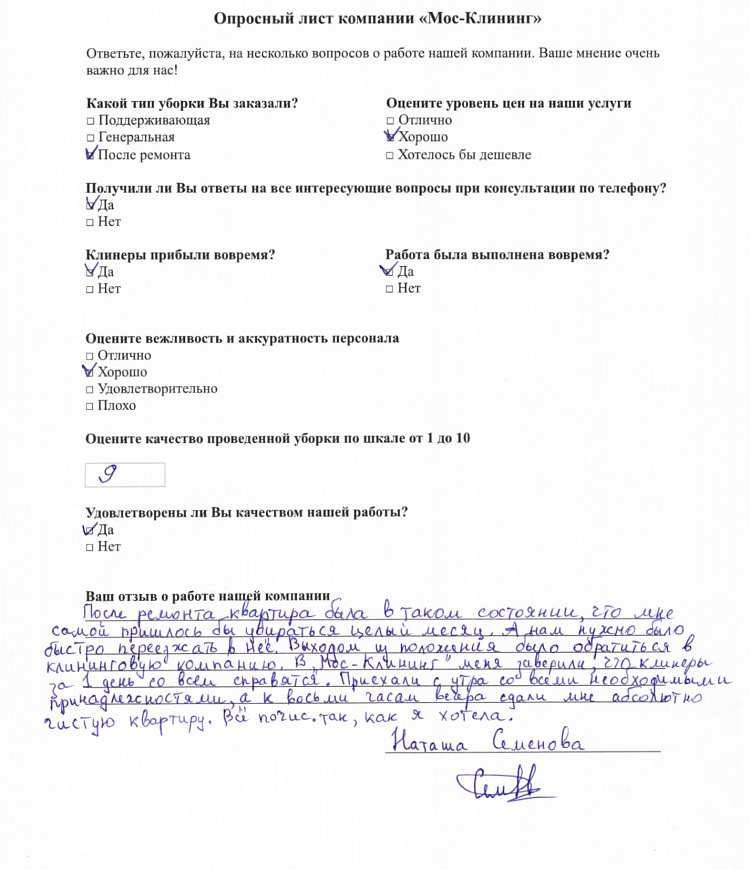 Опросный лист компании «Мос-Клининг»
Ответьте, пожалуйста, на несколько вопросов о работе нашей компании. Ваше мнение очень
важно для нас!
Какой тип уборки Вы заказали?
Поддерживающая
Генеральная
После ремонта
Оцените уровень цен на наши услуги
Отлично
Хорошо
Хотелось бы дешевле
Получили ли Вы ответы на все интересующие вопросы при консультации по телефону?
Да
Нет
Клинеры прибыли вовремя?
Да
Нет
Работа была выполнена вовремя?
Да
Нет
Оцените вежливость и аккуратность персонала
Отлично
Хорошо
Удовлетворительно
Плохо
Оцените качество проведенной уборки по шкале от 1 до 10
9
Удовлетворены ли Вы качеством нашей работы?
Да
Нет
Ваш отзыв о работе нашей компании
После ремонта квартира была в таком состоянии, что мне
самой пришлось бы убираться целый месяц. А нам нужно было
быстро переезжать в неё. Выходом из положения было обратиться в
клининговую компанию. В „Мос-Клининг" меня заверили, что клинеры
за 1 день со всем справятся. Приехали с утра со всеми необходимыми
принадлежностями, а к восьми часам вечера сдали мне абсолютно
чистую квартиру. Всё так, как я хотела.
Наташа Семенова